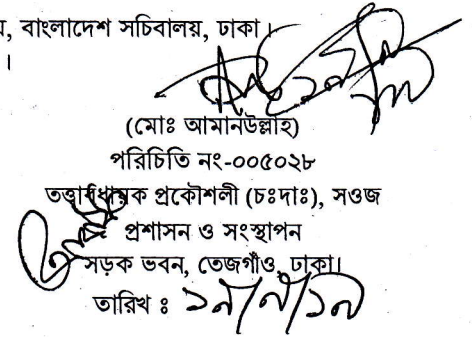 , বাংলাদেশ সচিবালয়, ঢাকা।
।
(মোঃ আমানউল্লাহ)
পরিচিতি নং-০০৫০২৮
তত্ত্বাবধায়ক প্রকৌশলী (চঃদাঃ), সওজ
প্রশাসন ও সংস্থাপন
সড়ক ভবন, তেজগাঁও, ঢাকা।
তারিখ ঃ